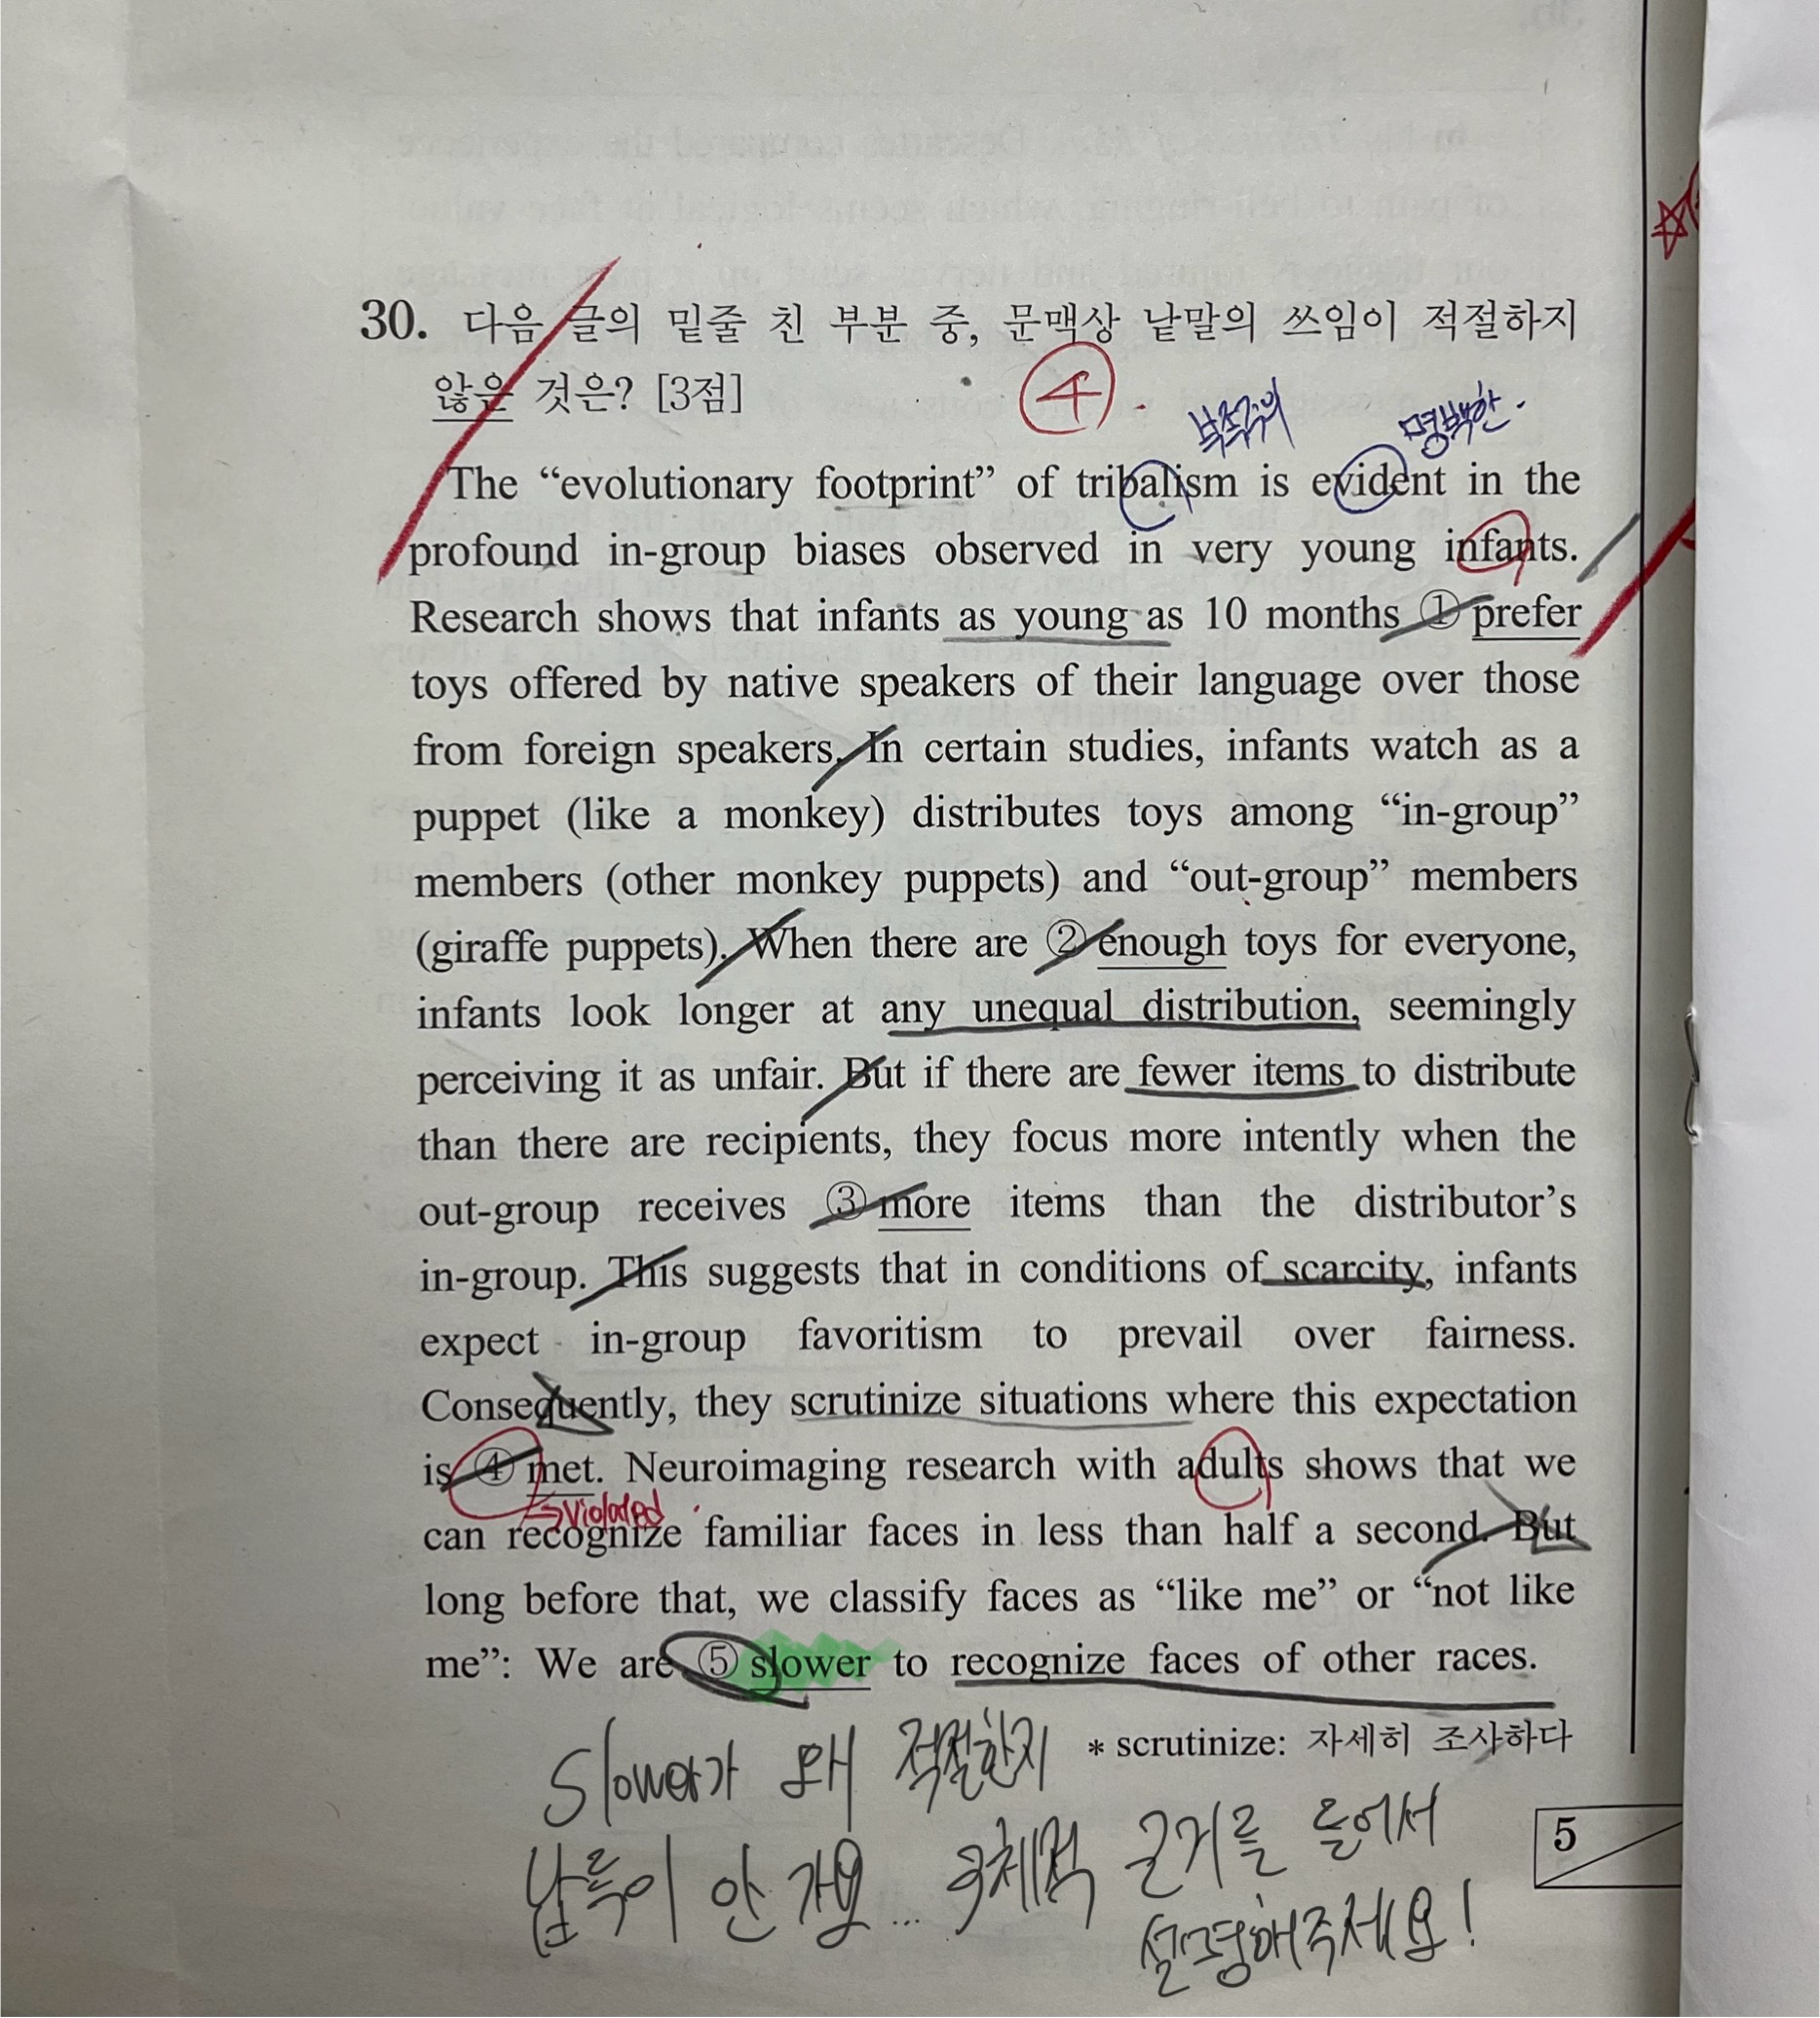 30. 다음 글의 밑줄 친 부분 중, 문맥상 낱말의 쓰임이 적절하지
않은 것은? [3점]
④
부족주의 명백한
The “evolutionary footprint” of tribalism is evident in the
profound in-group biases observed in very young infants.
Research shows that infants as young as 10 months ① prefer
toys offered by native speakers of their language over those
from foreign speakers. In certain studies, infants watch as a
puppet (like a monkey) distributes toys among “in-group”
members (other monkey puppets) and “out-group” members
(giraffe puppets). When there are ② enough toys for everyone,
infants look longer at any unequal distribution, seemingly
perceiving it as unfair. But if there are fewer items to distribute
than there are recipients, they focus more intently when the
out-group receives ③ more items than the distributor’s
in-group. This suggests that in conditions of scarcity, infants
expect in-group favoritism to prevail over fairness.
Consequently, they scrutinize situations where this expectation
is ④ met. Neuroimaging research with adults shows that we
→violated
can recognize familiar faces in less than half a second. But
long before that, we classify faces as “like me” or “not like
me”: We are ⑤ slower to recognize faces of other races.
* scrutinize: 자세히 조사하다
Slower가 왜 적절한지
납득이 안 가요... 구체적 근거를 들어서
설명해주세요!
5